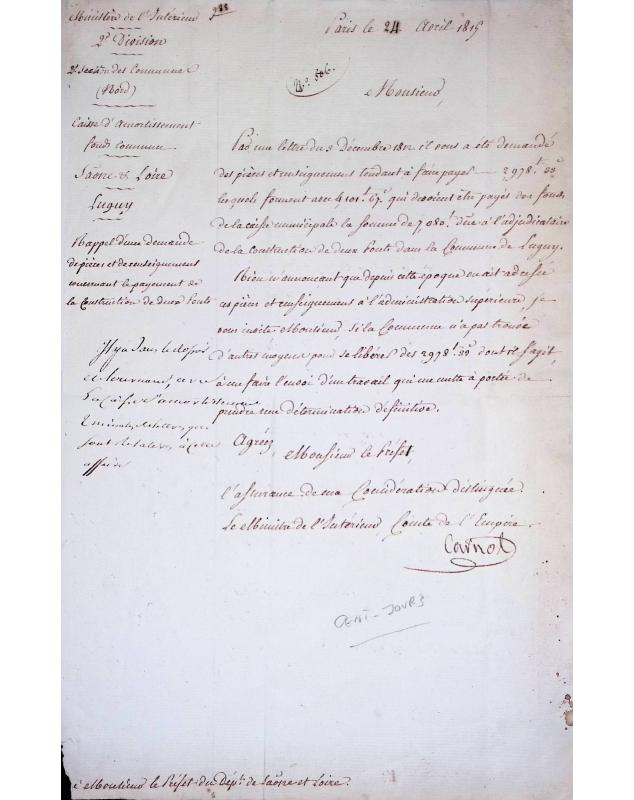 Ministère de l'Intérieur
2e Division
2e Section des Communes
(Nord)
Caisse d'Amortissement
fonds commun
Saône & Loire
Luguy
Rappel d'une demande
de pièces et de renseignement
concernant le payement de
la Construction de deux Ponts
Il y a dans le dossier
affaire
Paris le 24 Avril 1815
No. 506.
Monsieur,
Par une lettre du 3 Décembre 1812 il vous a été demandé
des pièces et renseignement tendant à faire payer 2978f 33c
lesquels forment avec 4101f 67c qui devoient être payés des fonds
de la caisse municipale la somme de 7080f due à l'adjudicataire
de la Construction de deux Ponts dans la Commune de Luguy.
Rien n'annonçant que depuis cette époque on ait adressé
ces pièces et renseignement à l'administration supérieure, je
vous invite Monsieur, si la Commune n'a pas trouvé
d'autre moyen pour se libérer des 2978f 33c dont il s'agit,
à me faire l'envoi d'un travail qui me mette à portée de
prendre une détermination définitive.
Agréez,
Monsieur le Préfet,
l'assurance de ma Considération distinguée.
Le Ministre de l'Intérieur, Comte de l'Empire.
Carnot
CENT-JOURS
à Monsieur le Préfet du Dépt. de Saône et Loire.